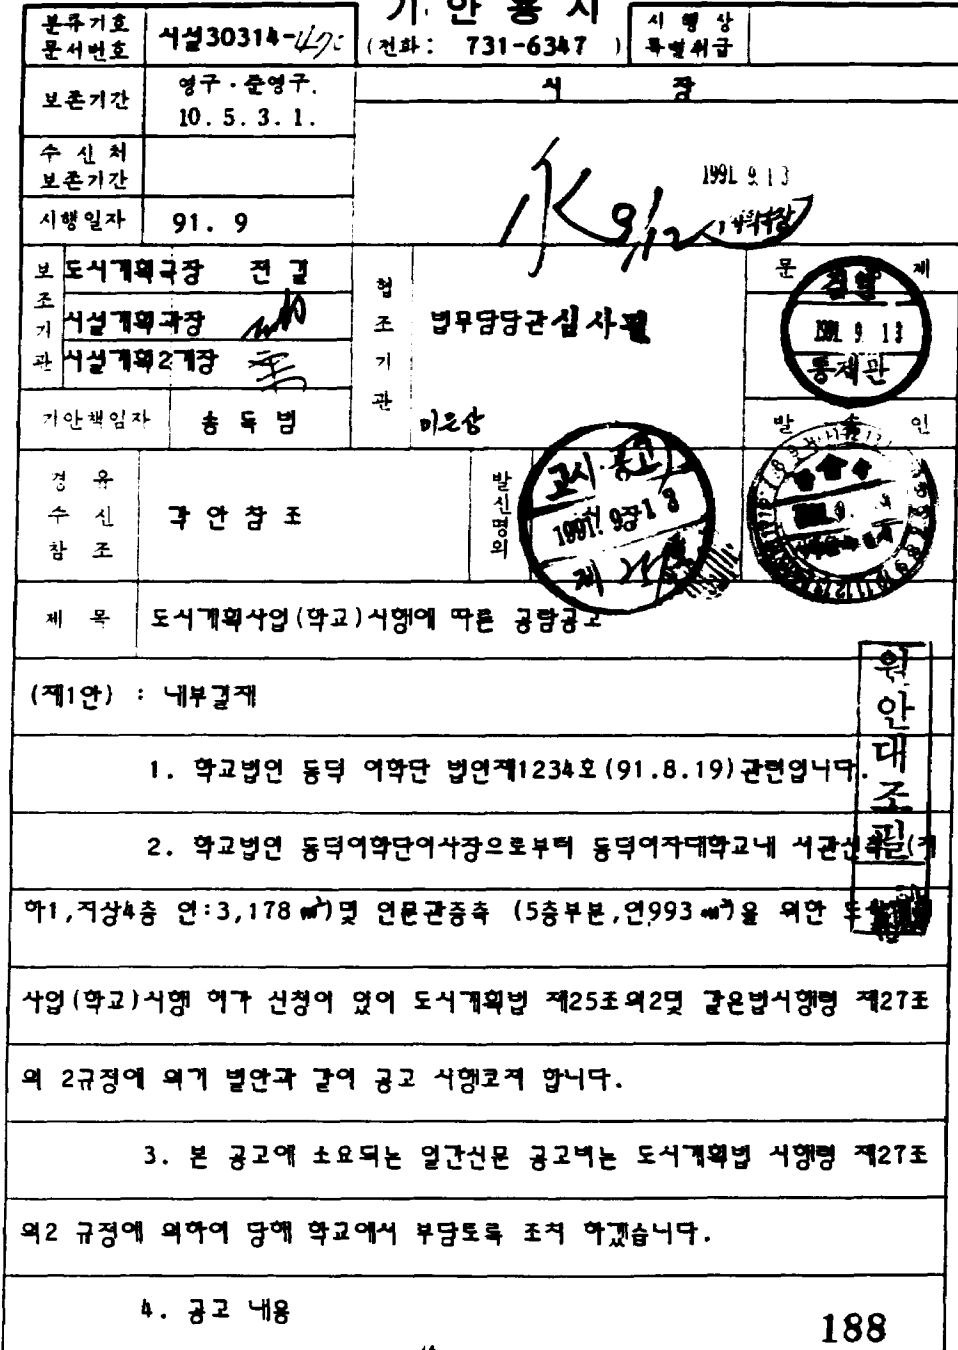 기 안 용 지
분류기호
문서번호
시설30314-
(전화: 731-6347 )
시 행 상
특별취급
보존기간
영구·준영구.
10. 5. 3. 1.
시 장
수 신 처
보존기간
시행일자
91. 9
1991. 9. 13
9/12
보조기관
도시계획국장 전 결
시설계획과장
시설계획2계장
협조기관
법무담당관 심사필
문 제
1991. 9 13
통제관
기안책임자
송 득 범
발 인
경 유
수 신
참 조
각 안 참 조
발신명의
공고
1991. 9. 13
제
제 목
도시계획사업(학교)시행에 따른 공람공고
원안대조필
(제1안) : 내부결재
1. 학교법인 동덕 여학단 법인제1234호(91.8.19)관련입니다.
2. 학교법인 동덕여학단이사장으로부터 동덕여자대학교내 서관신축(지
하1,지상4층 연:3,178㎡)및 인문관증축 (5층부분,연993㎡)을 위한
사업(학교)시행 허가 신청이 있어 도시계획법 제25조의2및 같은법시행령 제27조
의 2규정에 의거 별안과 같이 공고 시행코저 합니다.
3. 본 공고에 소요되는 일간신문 공고비는 도시계획법 시행령 제27조
의2 규정에 의하여 당해 학교에서 부담토록 조치 하겠습니다.
4. 공고 내용
188